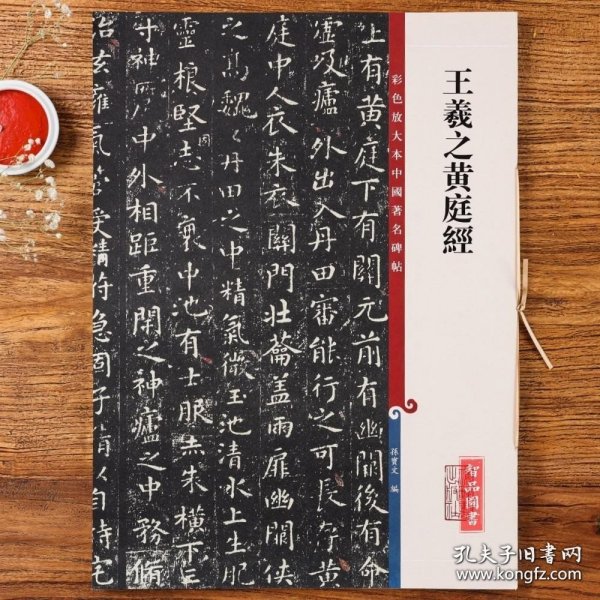 王羲之黄庭經
彩色放大本中國著名碑帖
孫寶文 編
上有黄庭下有關元前有幽闕後有命
廬外出入丹田審能行之可長存黄
庭中人衣朱衣關門壯蘥盖兩扉幽闕俠
之高魏〻丹田之中精氣微玉池清水上生肥
靈根堅志不衰中池有士服赤朱横下三
寸神所中外相距重閉之神廬之中務脩
治玄癰氣管受精符急固子精以自持宅
智品圖書
孔夫子旧書网
www.kongfz.com